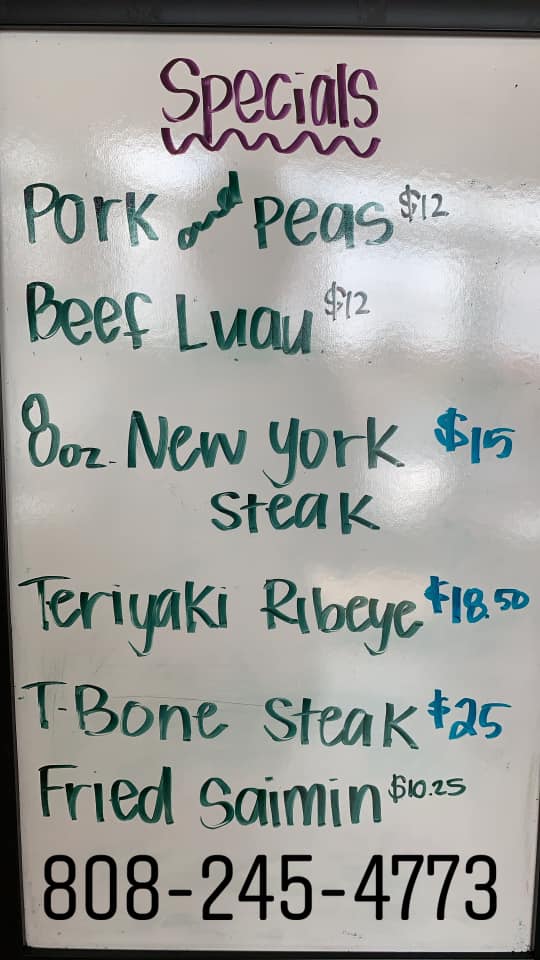 Specials
Pork and Peas $12
Beef Luau $12
8oz. New York $15
Steak
Teriyaki Ribeye $18.50
T-Bone Steak $25
Fried Saimin $10.25
808-245-4773